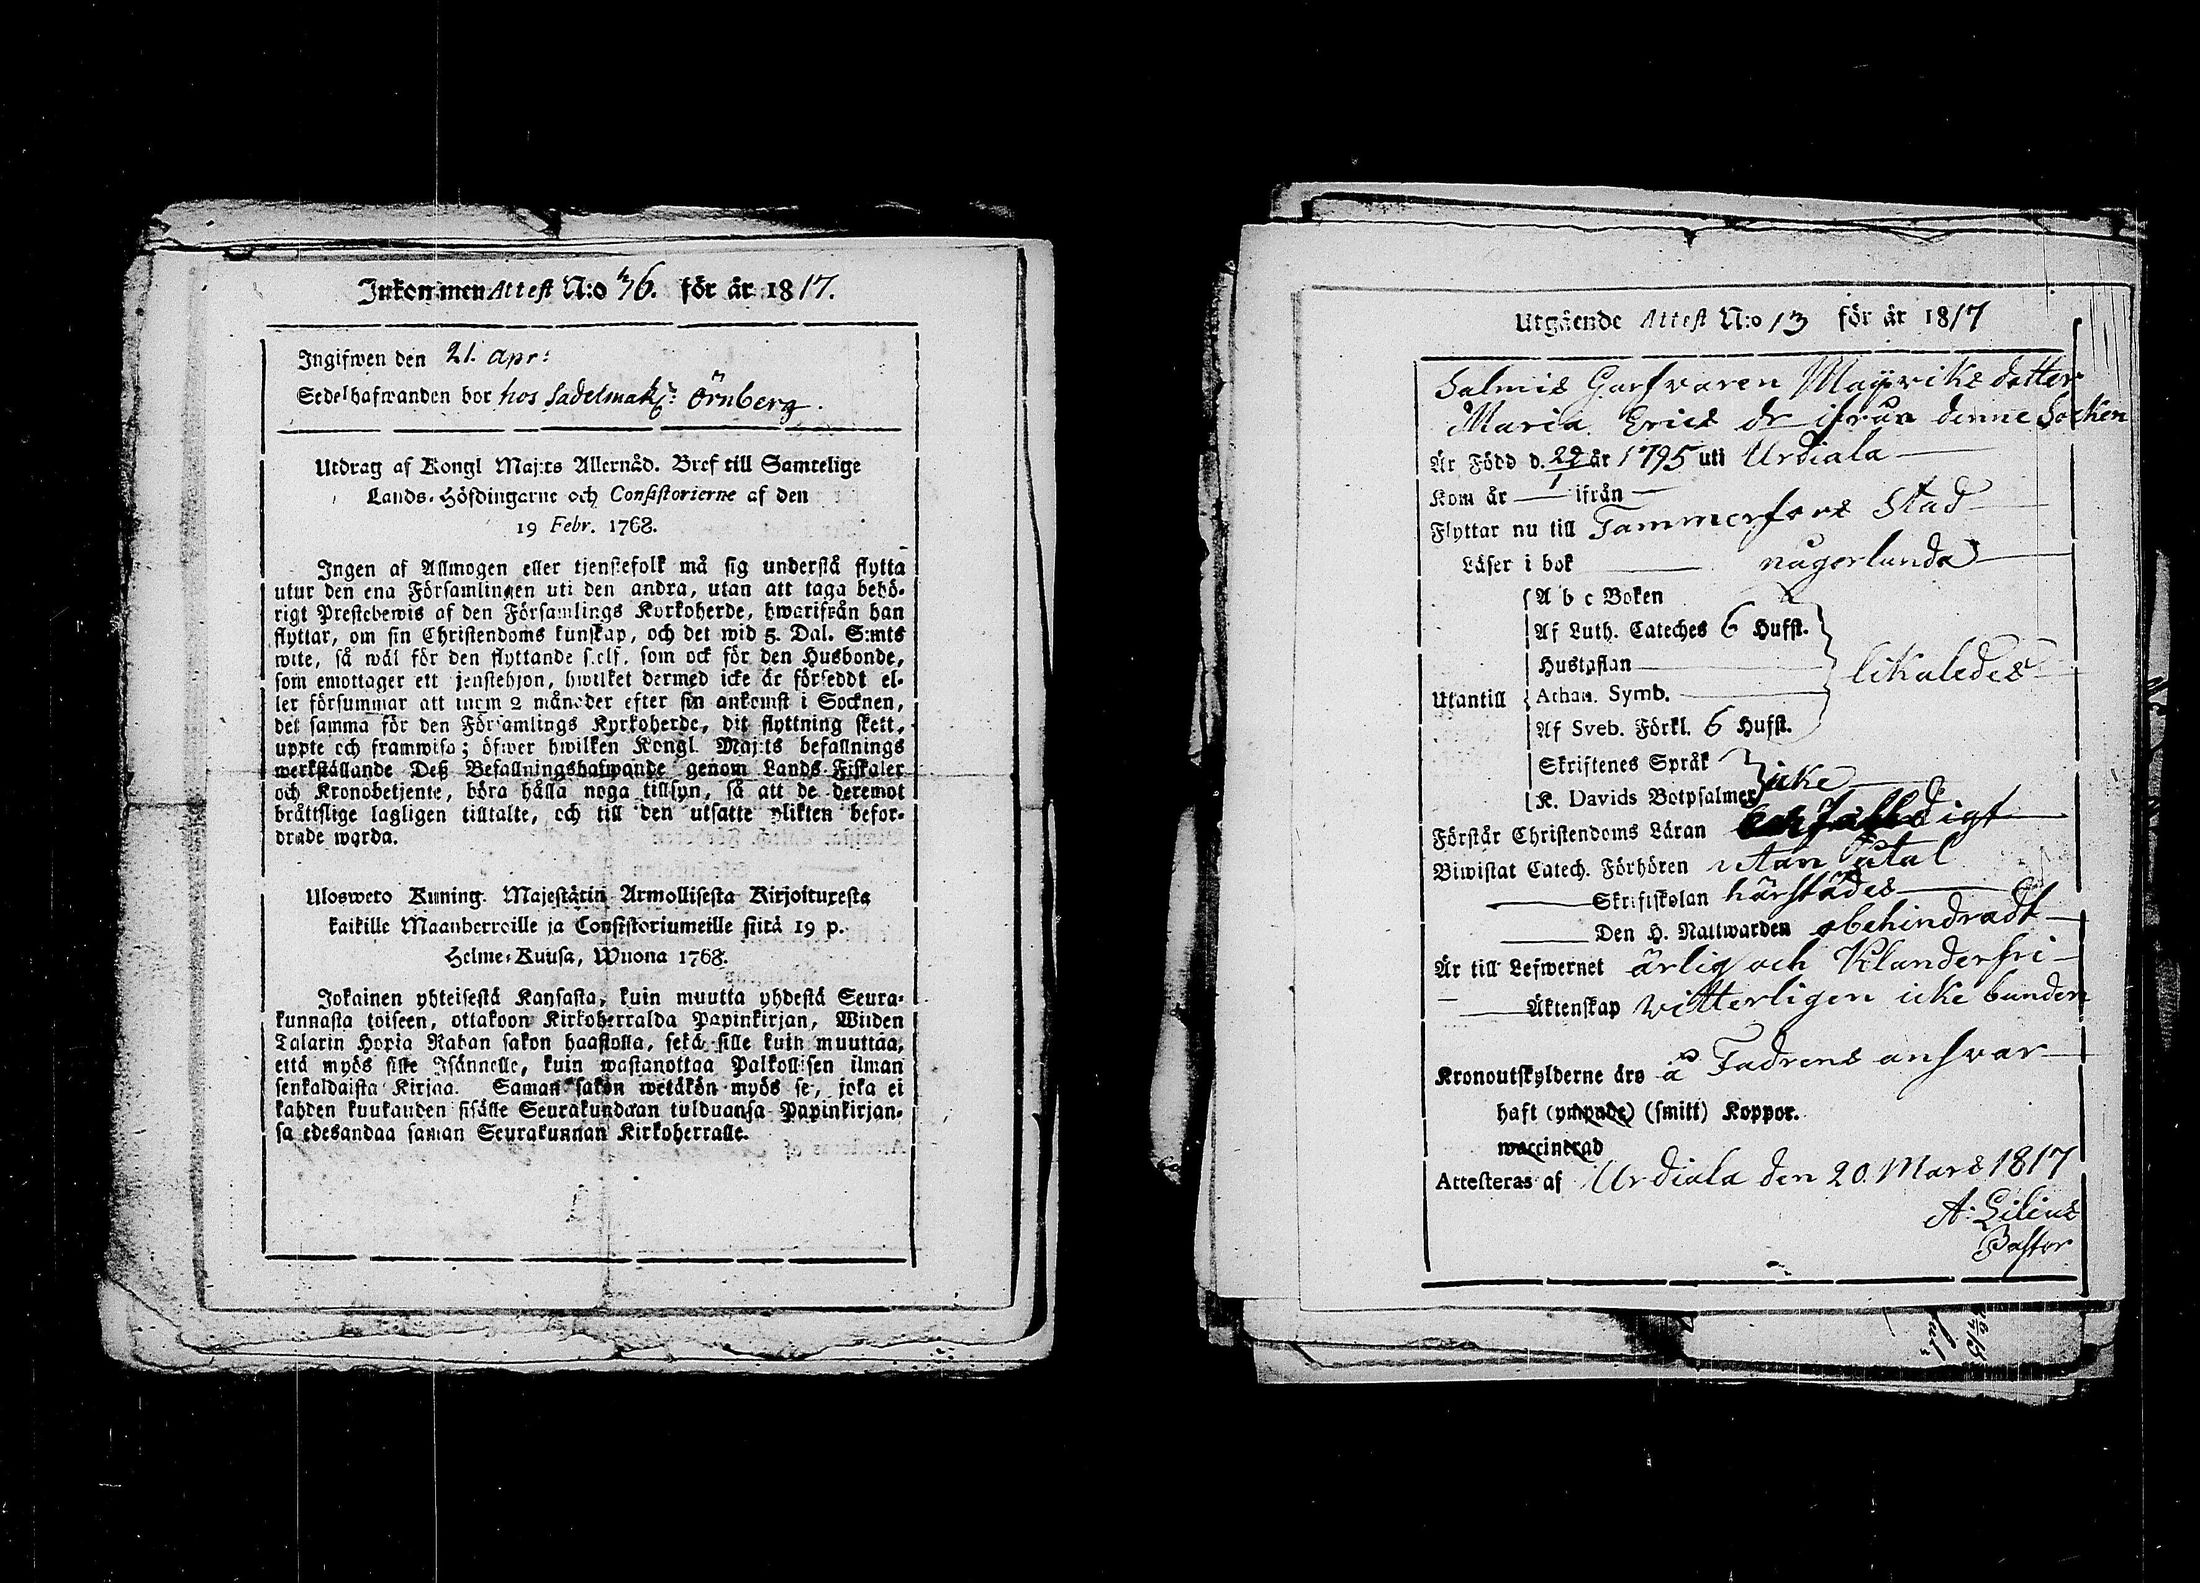 Inkommen Attest N:o 46. för år 1817.
Ingifwen den 21. apr:
Sedelhafwanden bor hos Sadelmak: Örnberg.
Utdrag af Kongl Maj:ts Allernåd. Bref till Samtelige
Lands-Höfdingarne och Consistorierne af den
19 Febr. 1768.
Ingen af Allmogen eller tjenstefolk må sig understå flytta
utur den ena Församlingen uti den andra, utan att taga behö-
rigt Prestebewis af den Församlings Kyrkoherde, hwarifrån han
flyttar, om sin Christendoms kunskap, och det wid 5. Dal. S:mts
wite, så wäl för den flyttande self, som ock för den Husbonde,
som emottager ett jenstehjon, hwilket dermed icke är försedt el-
ler försummar att inom 2 månader efter sin ankomst i Socknen,
det samma för den Församlings Kyrkoherde, dit flyttning skett,
uppte och framwisa; öfwer hwilken Kongl. Maj:ts befallnings
werkställande Deß Befallningshafwande genom Lands-Fiskaler
och Kronobetjente, böra hålla noga tillsyn, så att de deremot
bråttslige lagligen tilltalte, och till den utsatte plikten befor-
drade warda.
Uloswето Kuning. Majestätin Armollisesta Kirjoituxesta
kaikille Maanherroille ja Consistoriumeille siitä 19 p.
Helme-Kuusa, Wuona 1768.
Jokainen yhteisestä Kansasta, kuin muutta yhdestä Seura-
kunnasta toiseen, ottakoon Kirkoherralda Papinkirjan, Wiiden
Talarin Hopia Rahan sakon haastolla, sekä sille kuin muuttaa,
että myös sille Isännelle, kuin wastanottaa Palkollisen ilman
senkaldaista Kirjaa. Saman sakon wetäkön myös se, joka ei
kahden kuukauden sisälle Seurakundaan tulduansa Papinkirjan-
sa edesandaa saman Seurakunnan Kirkoherralle.
Utgående Attest N:o 13 för år 1817
Salmis Garfvaren Mayriks dotter
Maria Erics dr ifrån denne Socken
Är Född d. 22/1 år 1795 uti Urdiala
Kom år — ifrån —
Flyttar nu till Tammerfors Stad
Läser i bok någorlunda
A b c Boken
Af Luth. Cateches 6 Hufst.
Hustaflan likaledes
Utantill Athan. Symb.
Af Sveb. Förkl. 6 Hufst.
Skriftenes Språk icke
K. Davids Botpsalmer
Förstår Christendoms Läran
Biwistat Catech. Förhören utan åtal
Skriftskolan härstädes
Den H. Nattwarden obehindradt
Är till Lefwernet ärlig och Klanderfri
Äktenskap vitterligen icke bunden
Kronoutskylderne äro å Fadrens ansvar
haft (ympade) (smitt) Koppor.
waccinerad
Attesteras af Urdiala den 20. Mars 1817
A. Lilius
Pastor